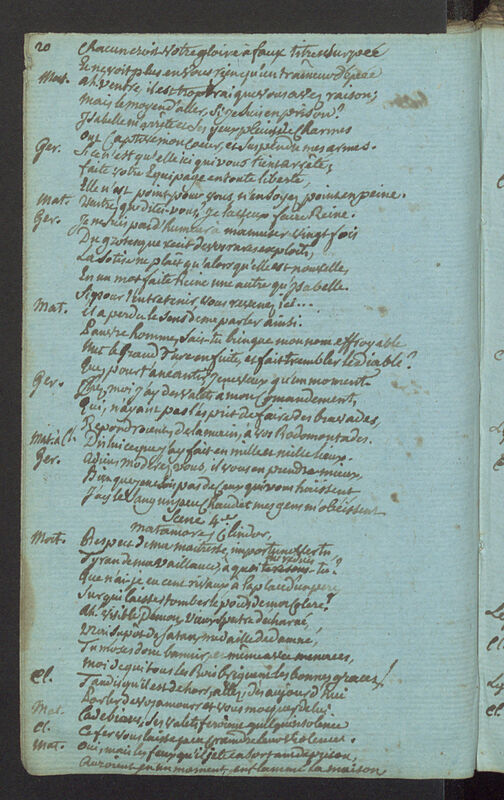 20 Chacun croit votre gloire à faux titre usurpée
Et ne voit plus en vous rien qu'un traîneur d'épée
Mat. Ah ventre, il est trop vrai que vous avez raison;
mais le moyen d'aller, si je suis en prison?
Isabelle m'arrête et ses yeux pleins de charmes
ont captivé mon coeur, et suspendu mes armes.
Ger. Si ce n'est qu'elle ici qui vous tient arrêté,
faites votre Equipage en toute liberté,
Elle n'est point pour vous, n'en soyez point en peine.
Mat. Ventre, que dites-vous, je la veux faire Reine.
Ger. Je ne suis pas d'humeur à m'amuser vingt fois
Du grotesque récit de vos rares exploits,
La sotise ne plaît qu'alors qu'elle est nouvelle,
En un mot faites Reine une autre qu'Isabelle.
Si pour l'entretenir vous revenez ici...
Mat. Il a perdu le sens de me parler ainsi.
Pauvre homme, sais-tu bien que mon nom effroyable
met le Grand Turc en fuite, et fait trembler le diable?
Que, pour t'anéantir, je ne veux qu'un moment.
Ger. Chez moi j'ay des valets a mon Commandement,
Qui, n'ayant pas l'esprit de faire des bravades,
Répondroient de la main, à vos Rodomontades.
Mat. à Cl. Dis lui ce que j'ay fait en mille et mille lieux.
Ger. Adieu moderez vous, il vous en prendra mieux,
Bien que je ne sois pas de ceux qui vous haïssent
J'ay le sang un peu Chaud et mes gens m'obéissent
Scene 4.e
matamore, Clindor.
Mat. Respect de ma maitresse, importune vertu
Tyran de ma vaillance, à quoi me reduis-tu?
Que n'ai-je eu cent rivaux à la place d'un pere
Sur qui laisser tomber le poids de mon Colere?
Ah, visible Demon, vieux spectre decharné,
Vrai supôt de Satan, medaille de damné,
Tu m'oses donc bannir, et même avec menaces,
moi de qui tous les Rois briguent les bonnes graces!
Cl. Tandis qu'il est dehors, allez dès aujourd'hui
Parler de vos amours et vous moquer de lui
Mat. Cadediou, ses valets feroient quelque insolence
Cl. Ce fer vous laisse peu craindre leur violence.
Mat. oui, mais les feux qu'il jette en sortant de prison,
Auroient en un moment, enflammé la maison